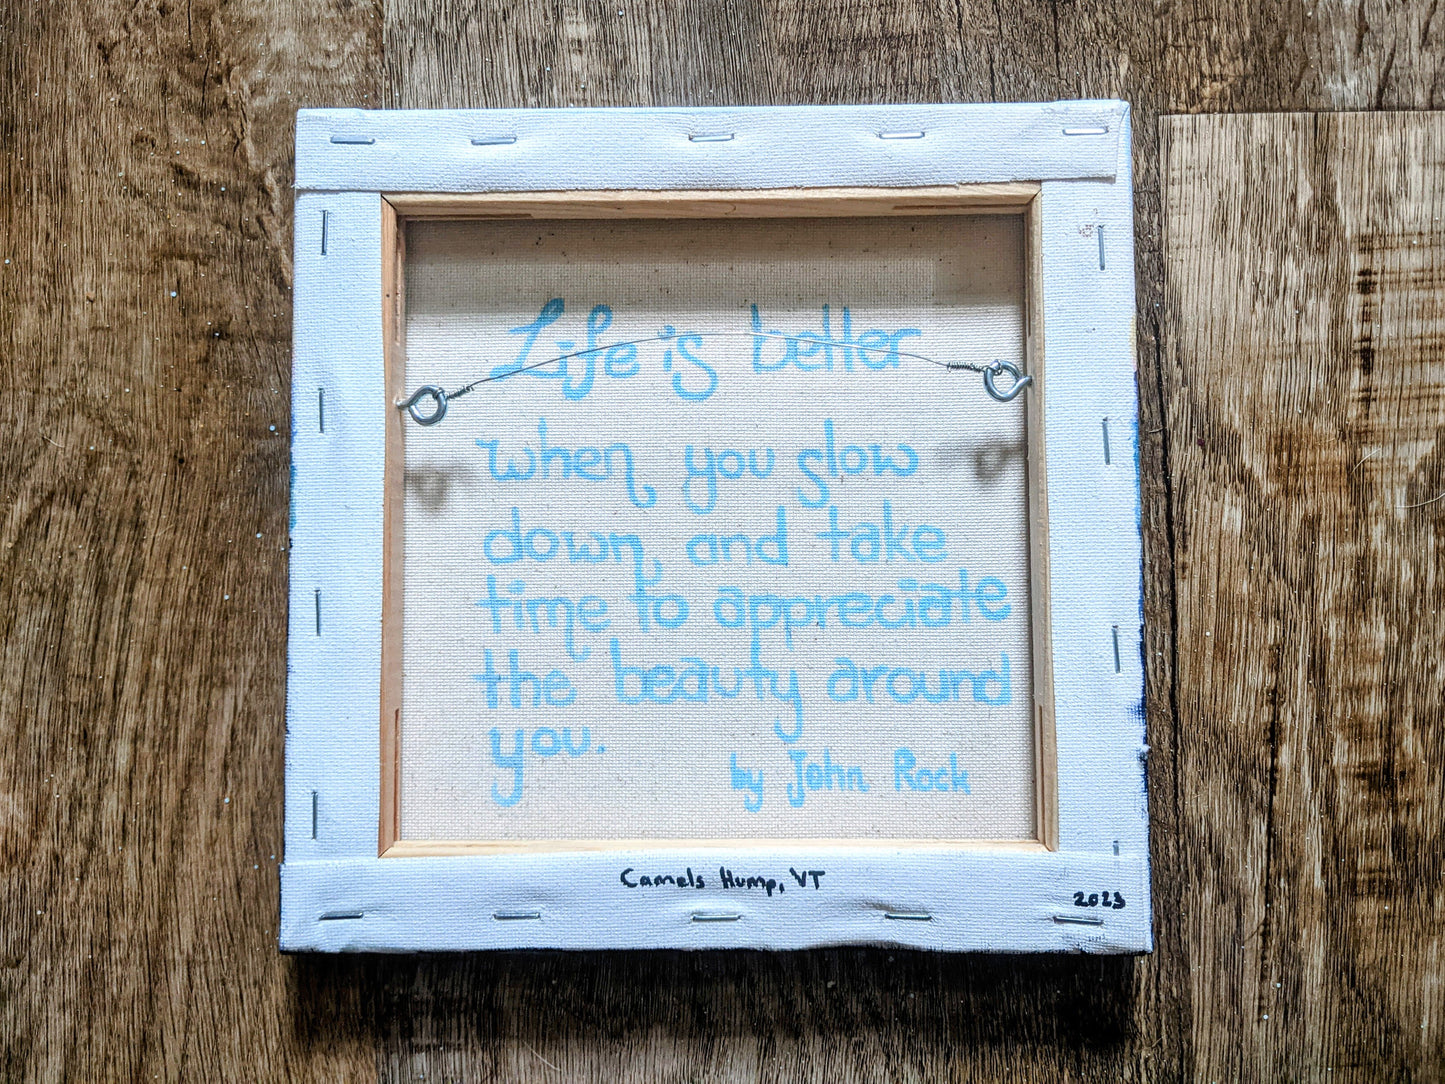 Life is better
when you slow
down, and take
time to appreciate
the beauty around
you.
by John Rock
Camels Hump, VT
2023